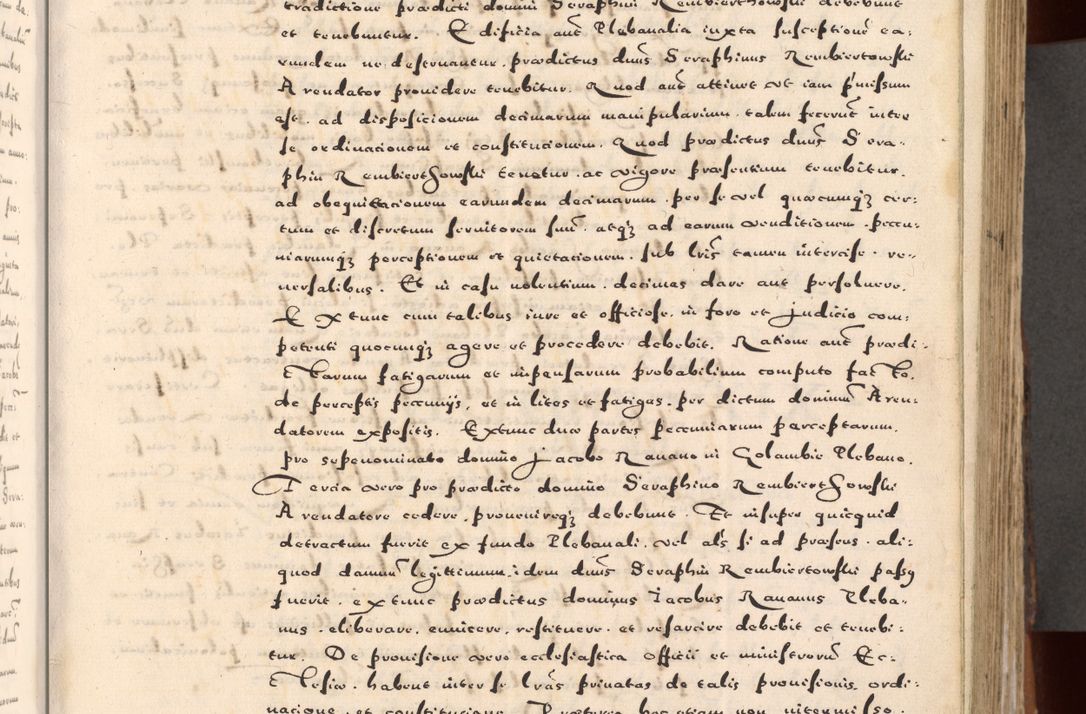 tradictione prædicti domini Seraphini Rembierthowski debebunt
et tenebuntur. Edificia aut Plebanalia iuxta susceptione ea:
rundem ne desernantur. prædictus dnus Seraphinus Rembiertowski
Arendator prouidere tenebitur. Quod aut attinet vt iam pmissum
est. ad disposicionem decimarum manipularium. talem fecerut inter
se ordinacionem et constitucionem. Quod prædictus dnus Sera-
phin Rembierthowski tenetur. ac vigore præsentium tenebitur.
ad obequitacionem earundem decimarum. per se vel quæcumqz cer-
tum et discretum seruitorem suu. atqz ad earum venditionem. peccu-
niarumqz perceptionem et quietacionem. sub lris tamen intercise. re-
uersalibus. Et in casu nolentium. decimas dare aut persoluere.
Extunc cum talibus iure et officiose. in foro et judicio com:
petenti quocumqz agere et procedere debebit. Ratione aut prædi:
ctarum fatigarum et inpensarum probabilium computo facto.
de perceptis peccunijs, et in lites et fatigas. per dictum dominu Aren:
datorem expositis. Extunc duæ partes peccuniarum perceptarum.
pro sepenominato domino Jacobo Ranano in Golambie Plebano.
Tercia vero pro prædicto domino Seraphino Rembierthowski
Arendatore cedere. prouenireqz debebunt. Et insuper quicquid
detractum fuerit ex fundo Plebanali. vel als si ad præsens. ali:
quod damnu legittimum. idem dnus Seraphin Rembiertowski passg
fuerit. extunc prædictus dominus Jacobus Rananus Pleba-
nus. eliberare, euincere, restituere. et resarcire debebit et tenebi:
tur. De prouisione vero ecclesiastica officii et ministroru Ec:
clesiæ. habent inter se lras priuatas de talis prouisionis ordi:
nacione. et constitucione. Præterea hoc etiam non intermisso.